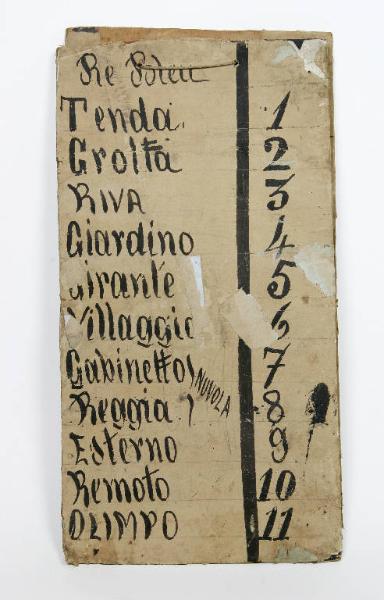 Re
Tenda 1
Grotta 2
RIVA 3
Giardino 4
Girante 5
Villaggio 6
Gabinetto 7
NUVOLA
Reggia 8
Esterno 9
Remoto 10
OLIMPO 11